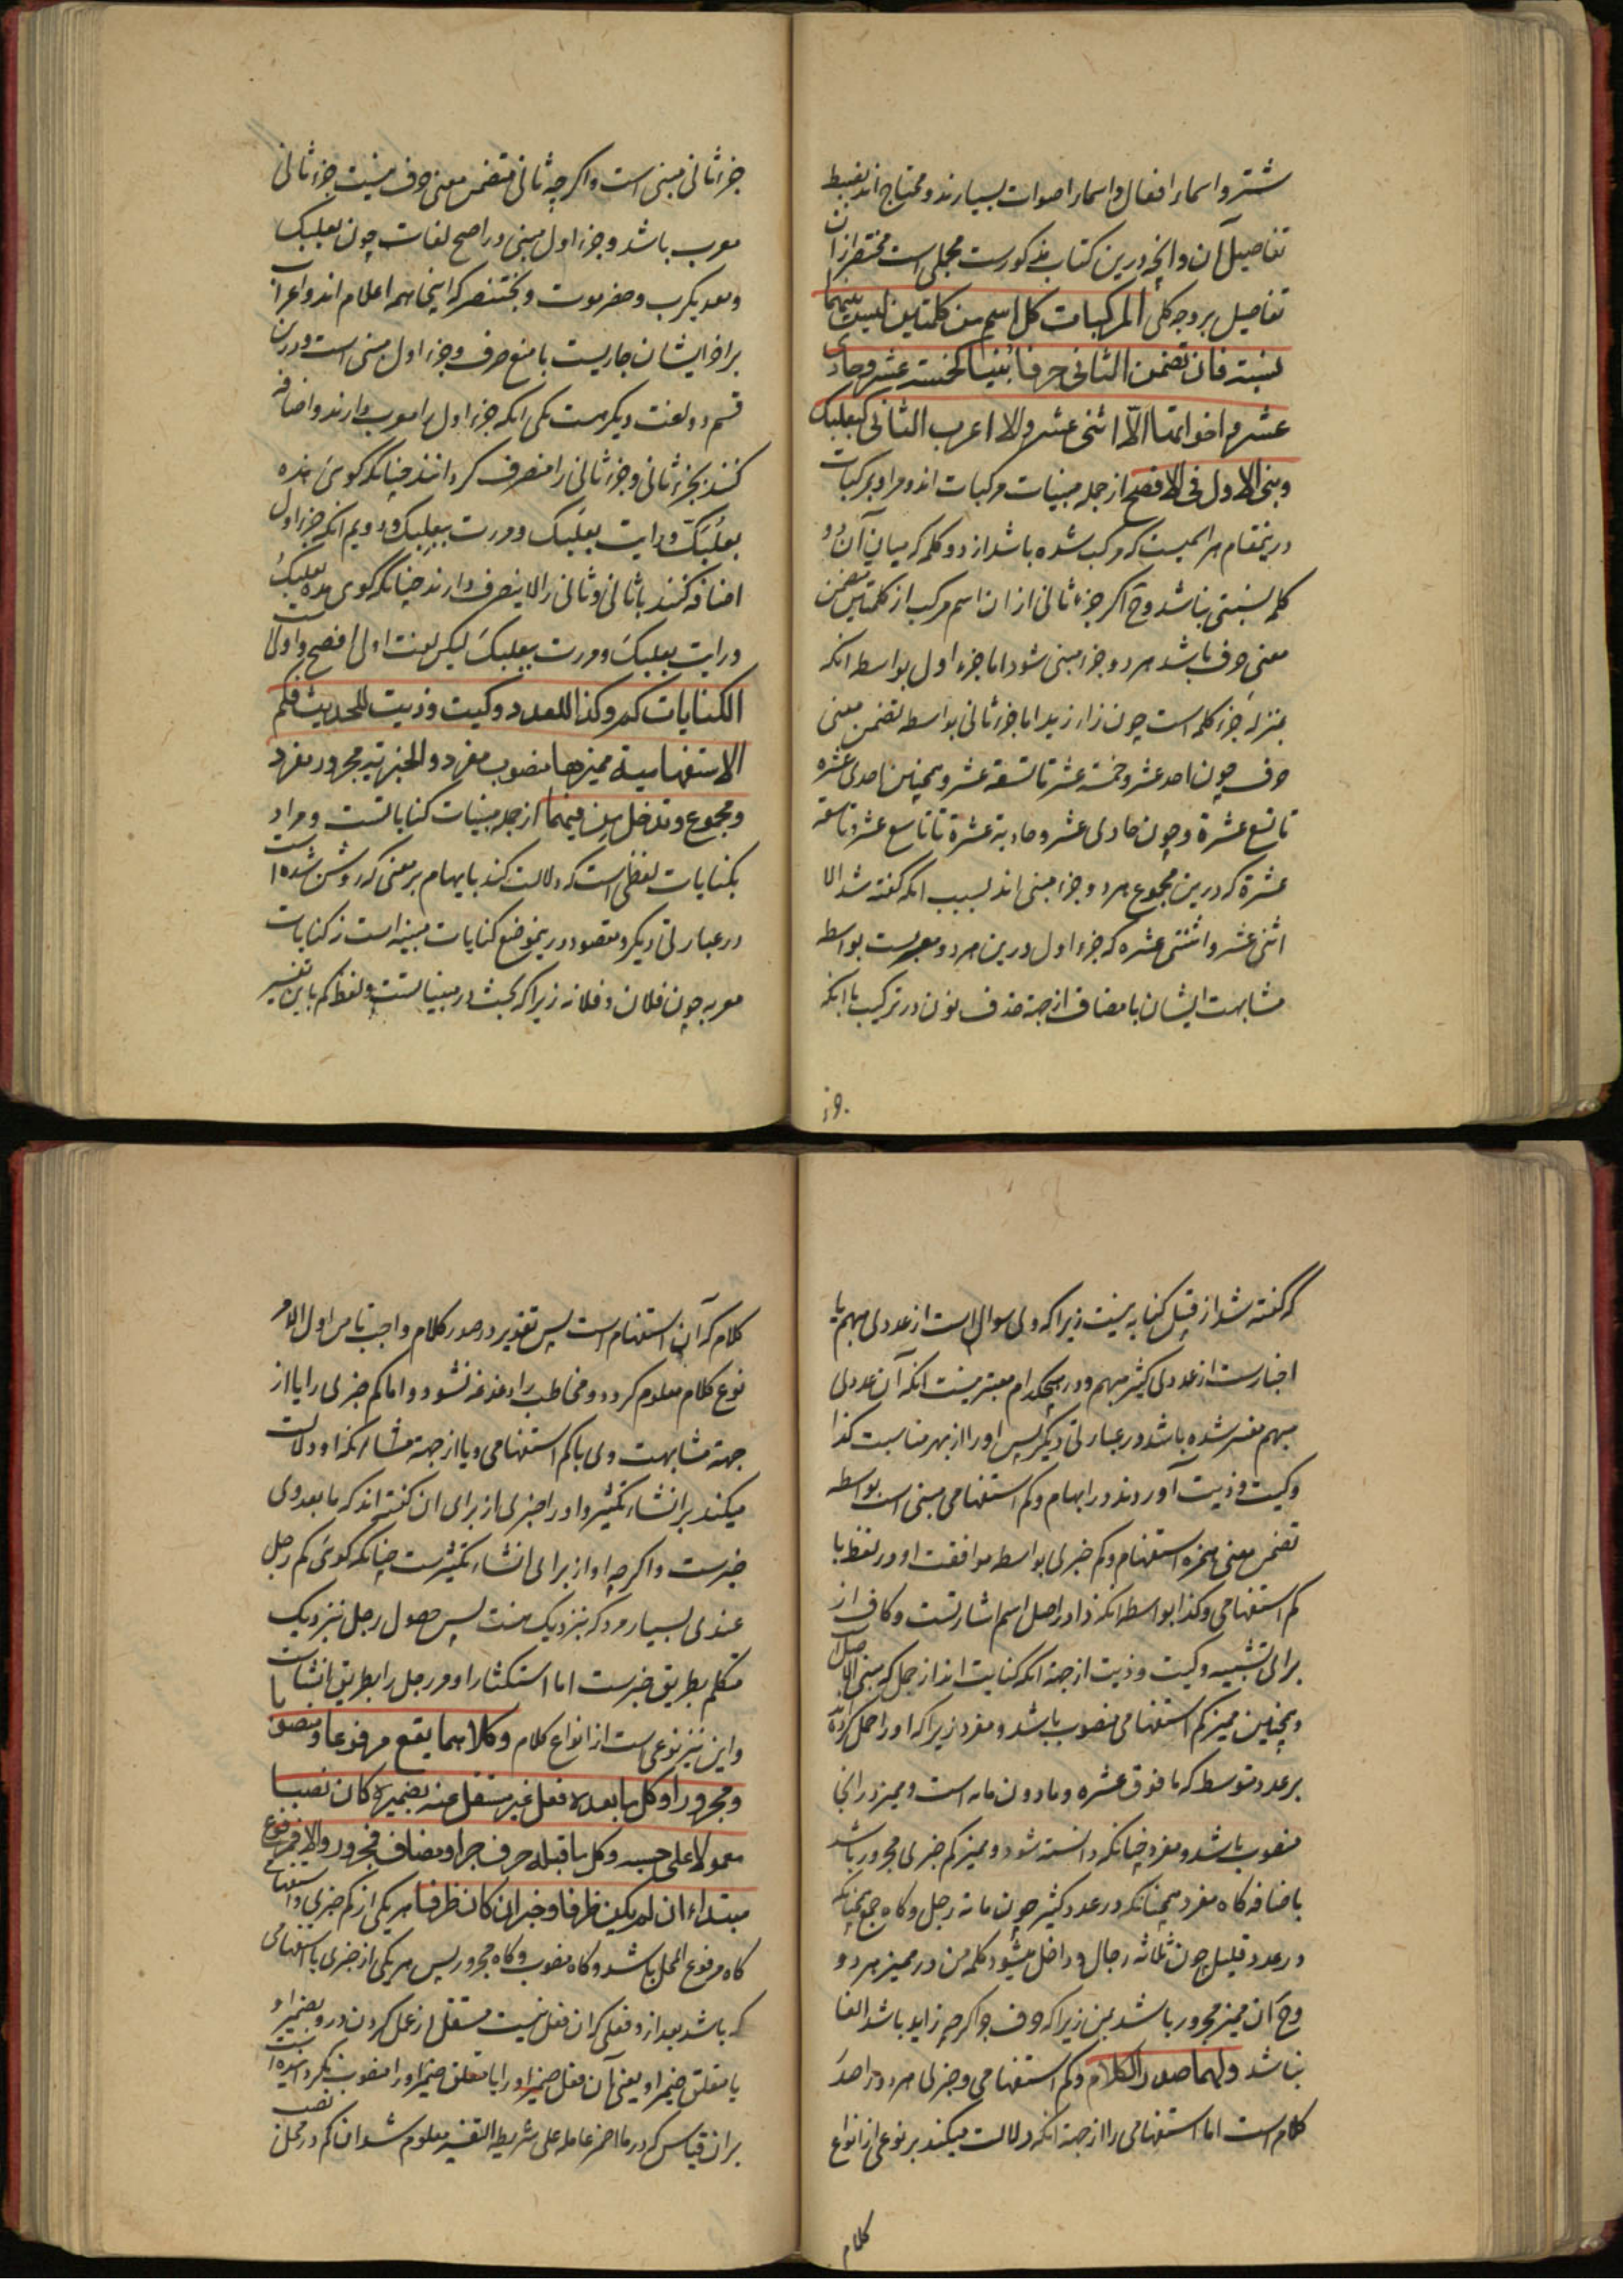 شتر و اسماء افعال و اسماء اصوات بسیارند و محتاج اند بضبط
تفاصیل آن و انچه درین کتاب مذکورست مجملی است مختصر ازان
تفاصیل بر وجه کلی المرکبات کل اسم من کلمتین لیست بینهما
نسبته فان تضمن الثانی حرفا بنیا کخمسته عشر و حادی
عشر و اخواتها الّا اثنی عشر و الا اعرب الثانی کبعلبک
و بنی الاول فی الافصح از جمله مبنیات مرکبات اند و مراد بمرکبات
درینمقام هر اسمیست که مرکب شده باشد از دو کلمه که میان آن دو
کلمه نسبتی نباشد وح اگر جزء ثانی از ان اسم مرکب از کلمتین متضمن
معنی حرف باشد هر دو جزء مبنی شود اما جزء اول بواسطه انکه
بمنزله جزء کلمه است چون زاء زید اما جزء ثانی بواسطه تضمن معنی
حرف چون احد عشر و خمسة عشر تا تسعة عشر و همچنین احدی عشره
تا تسع عشرة و چون حادی عشر و حادیة عشرة تا تاسع عشر و تاسعه
عشرة که درین مجموع هر دو جزء مبنی اند بسبب انکه گفته شد الا
اثنی عشر و اثنتی عشره که جزء اول درین هر دو معربست بواسطه
مشابهت ایشان با مضاف از جهة حذف نون در ترکیب با انکه
جزء
جزء ثانی مبنی است و اگر چه ثانی متضمن معنی حرف نیست جزء ثانی
معرب باشد و جزء اول مبنی در اصح لغات چون بعلبک
و معدیکرب و حضرموت و بختنصر که اینها همه اعلام اند و اعراب
بر اخر ایشان جاریست با منع صرف و جزء اول مبنی است و درین
قسم دو لغت دیگر هست یکی انکه جزء اول را معرب دارند و اضافه
کنند بجزء ثانی و جزء ثانی را منصرف گردانند چنانکه گوئی هذه
بعلُبَکّ و رایت بعلَبک و مررت ببعلِبک و دویم انکه جزء اول
اضافه کنند با ثانی و ثانی را لاینصرف دارند چنانکه گوی هذه بعلبکُ
و رایت بعلبکَ و مررت ببعلبکَ لیکن لغت اولی افصح و اولاست
الکنایات کم و کذا للعدد و کیت و ذیت للحدیث فکم
الاستفهامیة ممیزها منصوب مفرد و الخبریة مجرور مفرد
و مجموع و تدخل من فیهما از جمله مبنیات کنایاتست و مراد
بکنایات لفظی است که دلالت کند بابهام بر معنی که روشن شده است
در عبارتی دیگر و مقصود درینموضع کنایات مبنیه است نه کنایات
معربه چون فلان و فلانه زیرا که بحث در مبنیاتست و لفظ کم باین تفسیر
که گفته شد از قبیل کنایه نیست زیرا که وی سوال است از عددی مبهم یا
اخبارست از عددی کثیر مبهم و در هیچکدام معتبر نیست انکه آن عددی
مبهم مفسر شده باشد در عبارتی دیگر پس او را از بهر مناسبت کذا
و کیت و ذیت آوردند در ابهام و کم استفهامی مبنی است بواسطه
تضمن معنی همزه استفهام و کم خبری بواسطه موافقت او در لفظ با
کم استفهامی و کذا بواسطه انکه ذا در اصل اسم اشارتست و کاف از
برای تشبیه و کیت و ذیت از جهة انکه کنایت اند از جمل که مبنی الاصل
و همچنین ممیز کم استفهامی منصوب باشد و مفرد زیرا که او را حمل کرده اند
بر عدد متوسط که ما فوق عشره و ما دون مائه است و ممیز در انجا
منصوب باشد و مفرد چنانکه دانسته شود و ممیز کم خبری مجرور باشد
باضافه گاه مفرد همچنانکه در عدد کثیر چون مائة رجل و گاه جمع همچنانکه
در عدد قلیل چون ثلاثة رجال و داخل میشود کلمه من در ممیز هر دو
وح ان ممیز مجرور باشد بمن زیرا که حرف جر اگر چه زاید باشد الغا
نباشد و لهما صدر الکلام و کم استفهامی و خبری هر دو را صدر
کلام است اما استفهامی را از جهة انکه دلالت میکند بر نوعی از انواع
کلام
کلام که آن استفهام است پس تقدیر در صدر کلام واجب تا من اول الامر
نوع کلام معلوم گردد و مخاطب را دغدغه نشود و اما کم خبری را یا از
جهة مشابهت وی با کم استفهامی و یا از جهة مشابه انکه او دلالت
میکند بر انشاء تکثیر و او را خبری از برای ان گفته اند که ما بعد وی
خبرست و اگر چه او از برای انشاء تکثیرست چنانکه گوئی کم رجل
عندی بسیار مرد که نزدیک منست پس حصول رجل نزدیک
متکلم بطریق خبرست اما استکثار او مر رجل را بطریق انشاست
و این نیز نوعی است از انواع کلام و کلاهما یقع مرفوعا و منصوبا
و مجرورا و کل ما بعده فعل غیر مشتغل عنه بضمیره کان نصبا
معمولا علی حسبه و کل ما قبله حرف جر او مضاف فمجرور و الا فمرفوع
مبتداء ان لم یکن ظرفا و خبر ان کان ظرفا هر یکی از کم خبری و استفهامی
گاه مرفوع المحل باشد و گاه منصوب و گاه مجرور پس هر یکی از خبری یا استفهامی
که باشد بعد از و فعلی که ان فعل نیست مشتغل از عمل کردن در و بضمیر او
یا متعلق ضمیر او یعنی آن فعل ضمیر او را یا متعلق ضمیر او را منصوب نکرده است
بران قیاس که در ما اضمر عامله علی شریطه التفسیر معلوم شد ان کم در محل نصب